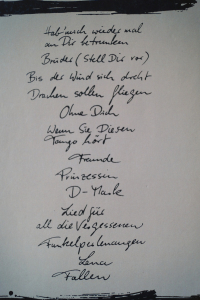 Hab' mich wieder mal
an Dir betrunken
Brüder (Stell Dir vor)
Bis der Wind sich dreht
Drachen sollen fliegen
Ohne Dich
Wenn Sie Diesen
Tango hört
Freunde
Prinzessin
D-Mark
Lied für
all die Vergessenen
Funkelperlenaugen
Lena
Fallen